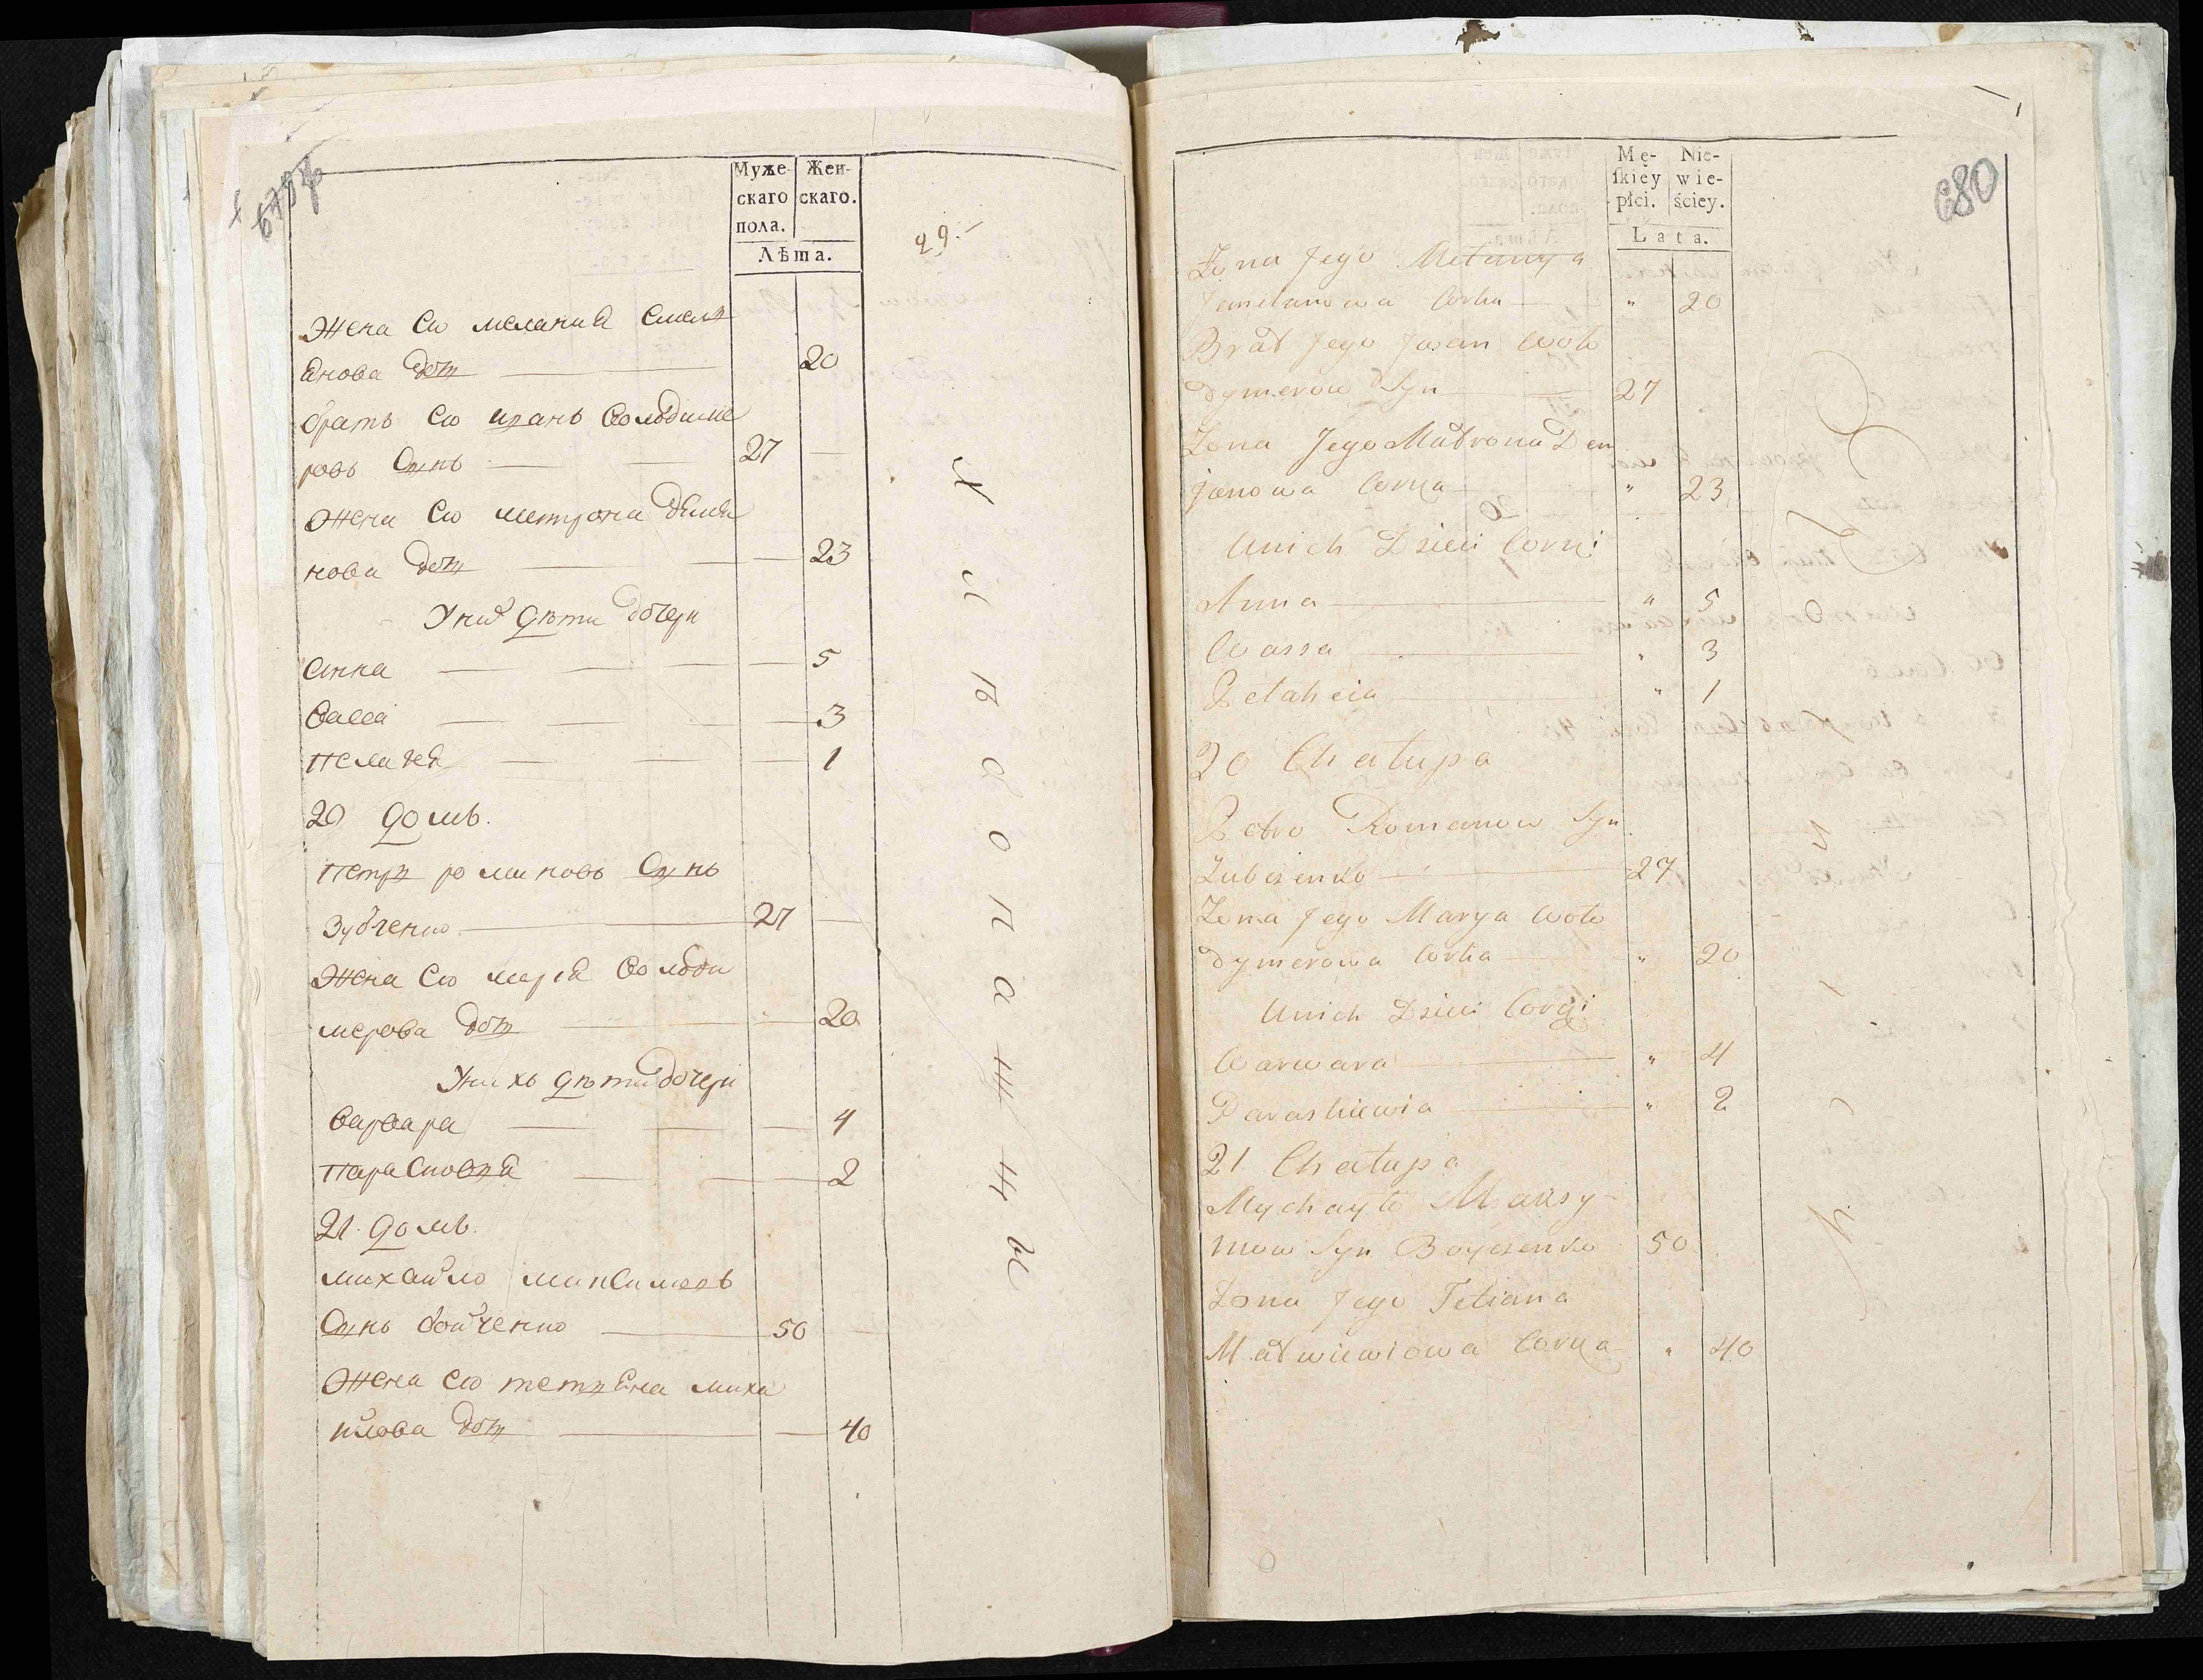 679 об
Муже-
скаго
пола.
Жен-
скаго.
Лѣта.
29.
Жена Ею мелания емелъ
янова доч 20
братъ Ею иванъ володиме
ровъ Сынъ 27
Жена Ею матрона демя
нова доч 23
У них дѣти дочери
анна 5
васса 3
пелагея 1
20 домъ.
петръ романовъ Сынъ
зубченко 27
Жена Ею мария володи
мерова доч 20
У нихъ дѣти дочери
варвара 4
парасковия 2
21. домъ.
михайло максимовъ
Сынъ бойченко 50
Жена ею тетяна миха
йлова доч 40
680
Mę-
ſkiey
płci.
Nie-
wie-
ściey.
Lata.
Żona Jego Melanya
Jemelanowa Corka " 20
Brat Jego Jwan Woło
dymerow Syn 27
Żona Jego Matrona Dem
janowa Corka " 23
Unich Dzieci Corki
Anna " 5
Wassa " 3
Pelaheia " 1
20 Chałupa
Petro Romanow Syn
Zubczenko 27
Żona Jego Marya Woło
dymerowa Corka " 20
Unich Dzieci Corki
Warwara " 4
Paraskiewia " 2
21 Chałupa
Mychayło Maksy-
mow Syn Boyczenko 50
Żona Jego Tetiana
Matwiewiowa Corka " 40